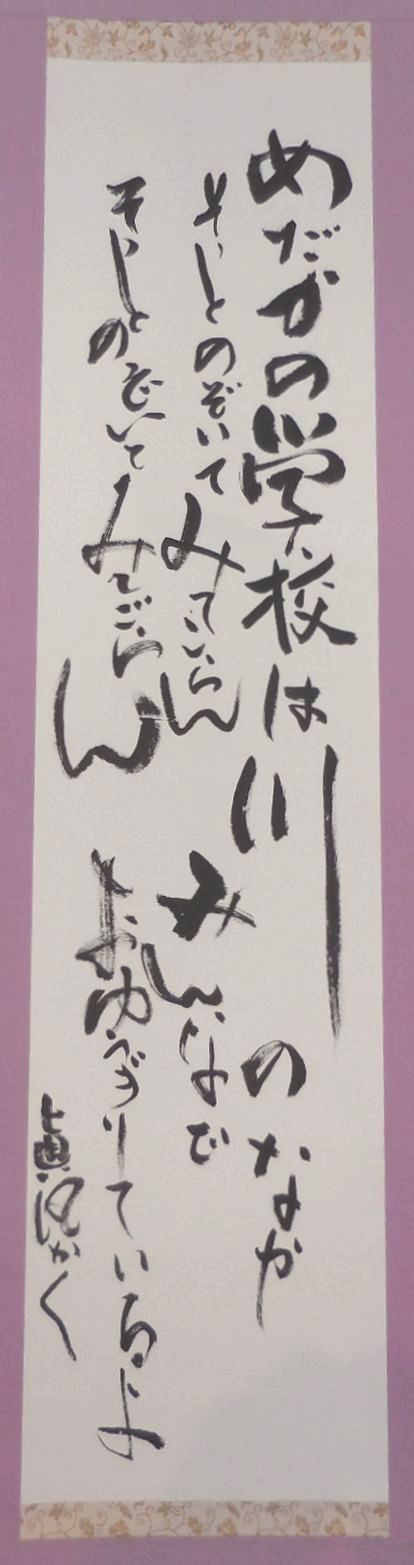 めだかの学校は川のなか
そーっとのぞいてみてごらんみんなで
そーっとのぞいてみてごらんおゆうぎしているよ
かく